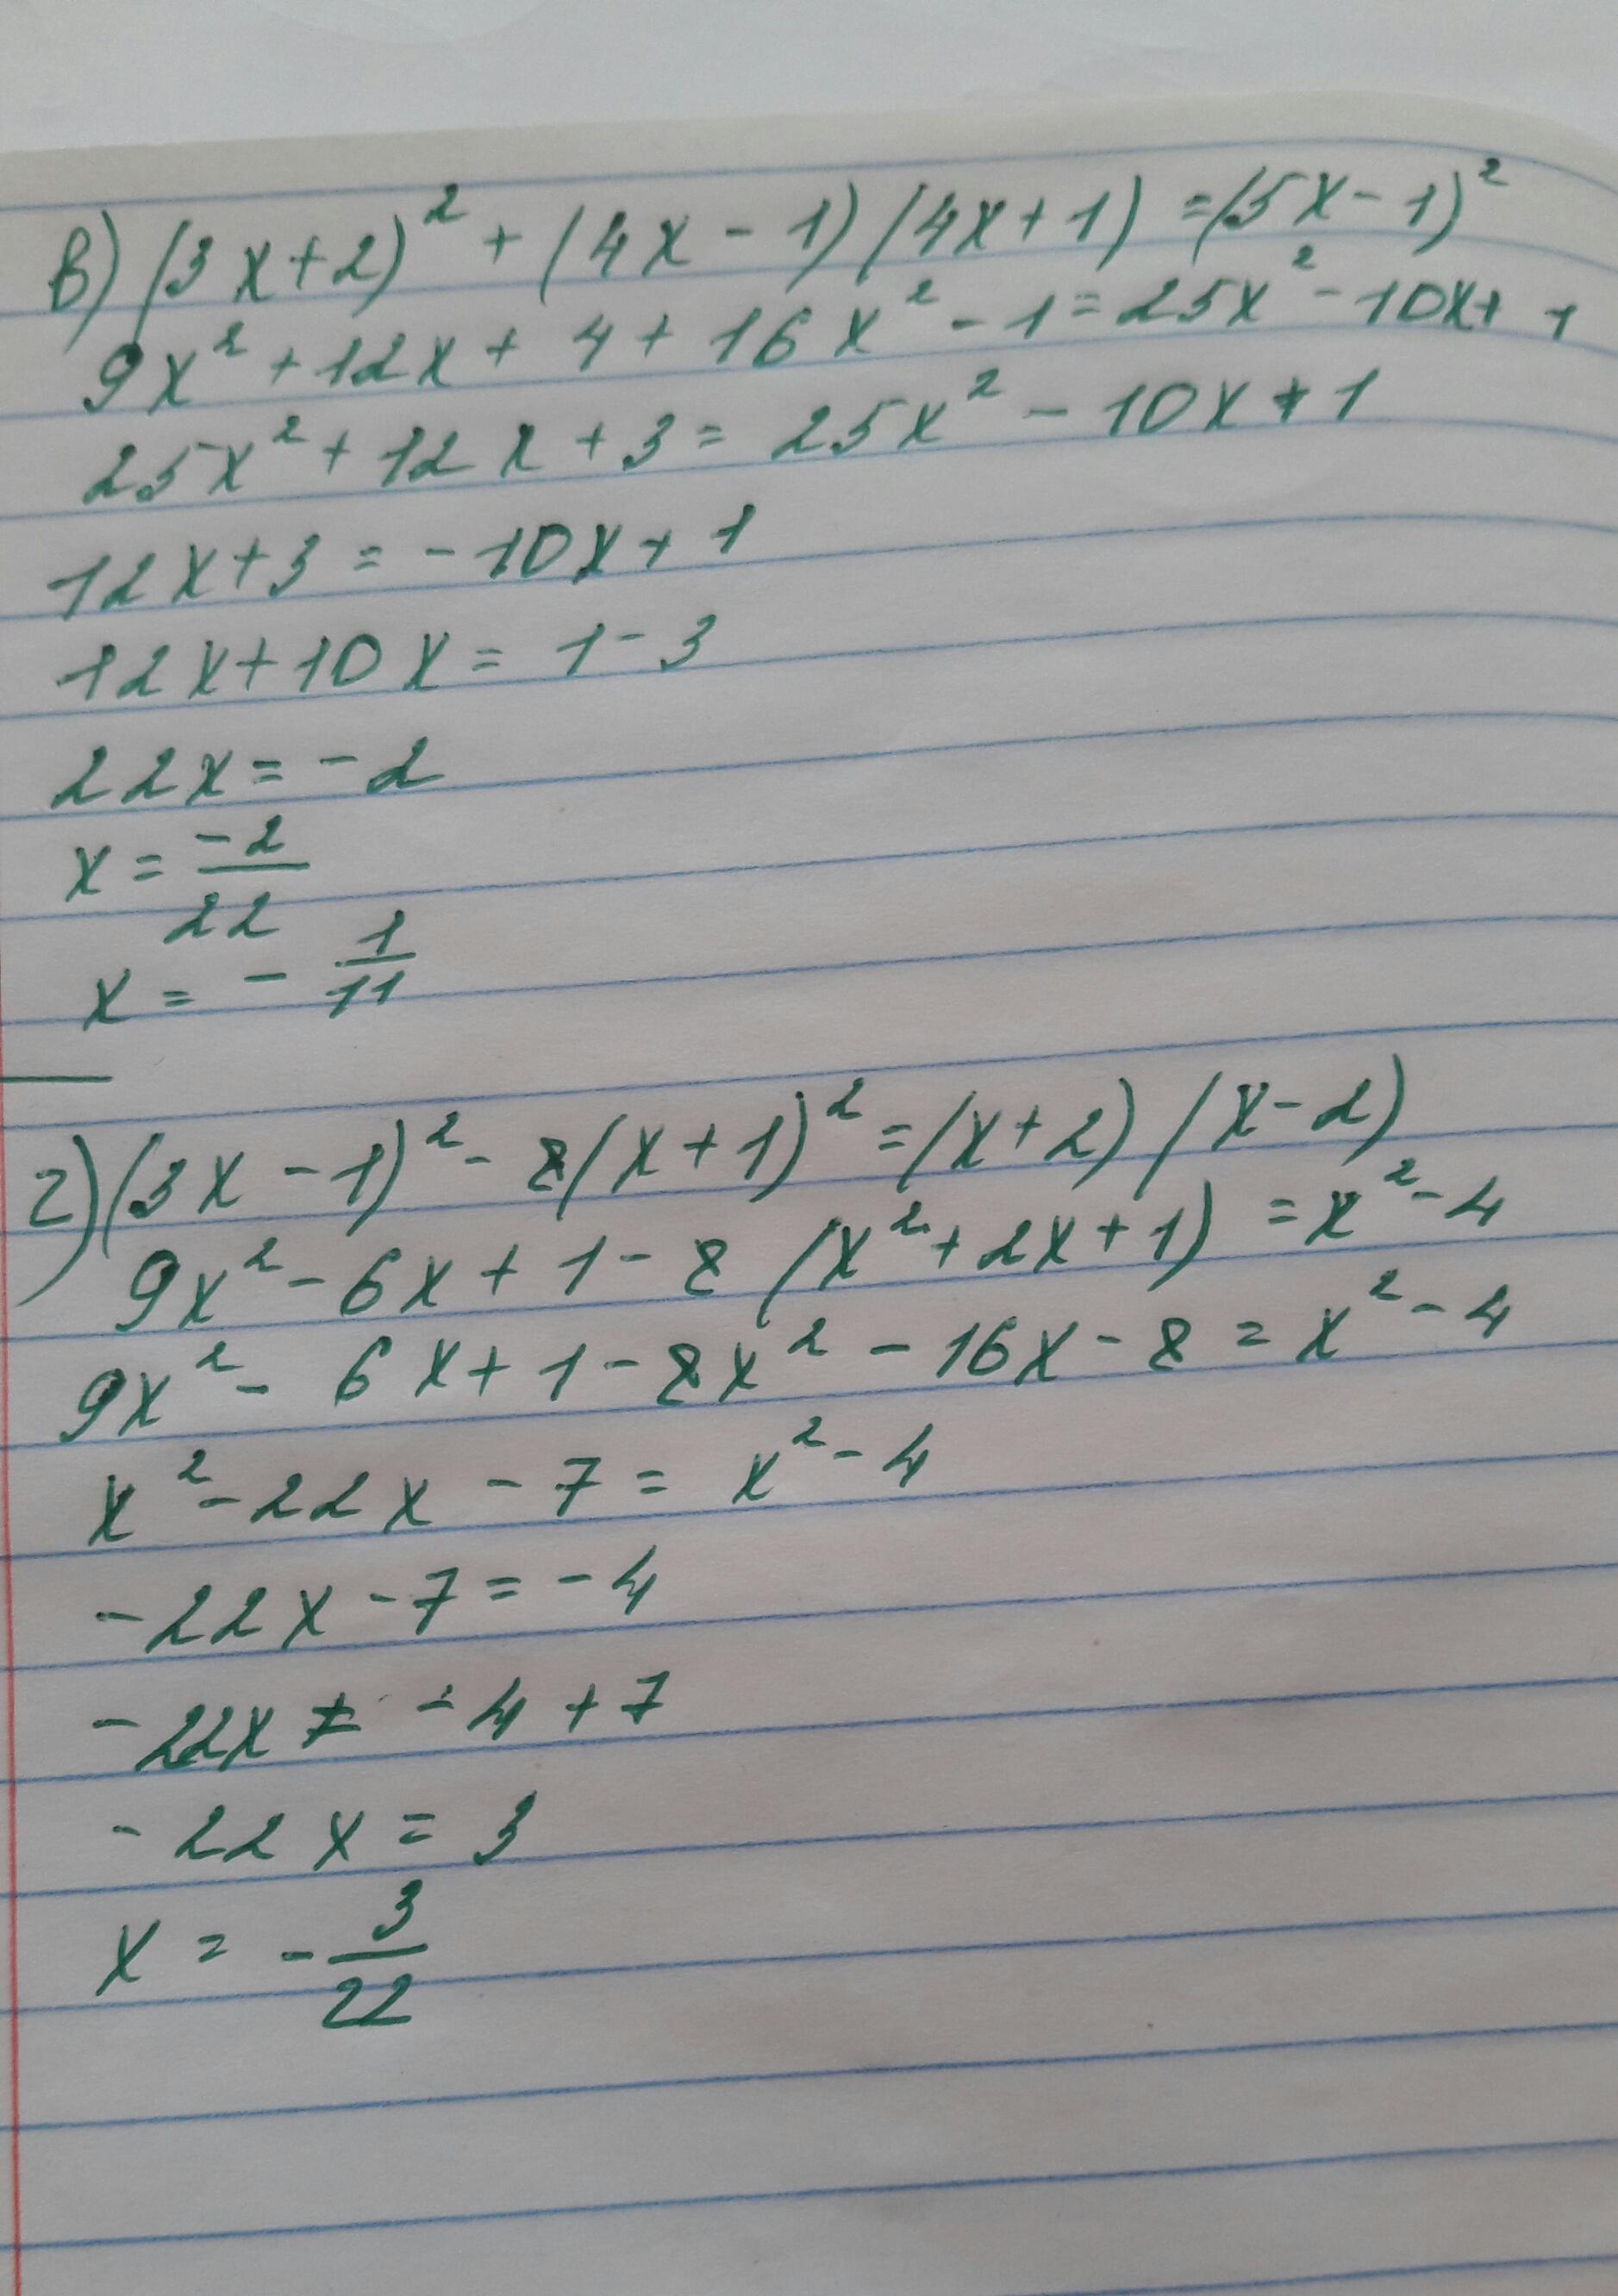 в) (3x+2)² + (4x - 1) (4x+1) = (5x - 1)²
9x² + 12x + 4 + 16x² - 1 = 25x² - 10x + 1
25x² + 12x + 3 = 25x² - 10x + 1
12x + 3 = - 10x + 1
12x + 10x = 1 - 3
22x = - 2
x = -2/22
x = - 1/11
г) (3x - 1)² - 8(x + 1)² = (x + 2) (x - 2)
9x² - 6x + 1 - 8 (x² + 2x + 1) = x² - 4
9x² - 6x + 1 - 8x² - 16x - 8 = x² - 4
x² - 22x - 7 = x² - 4
- 22x - 7 = - 4
- 22x = - 4 + 7
- 22x = 3
x = - 3/22